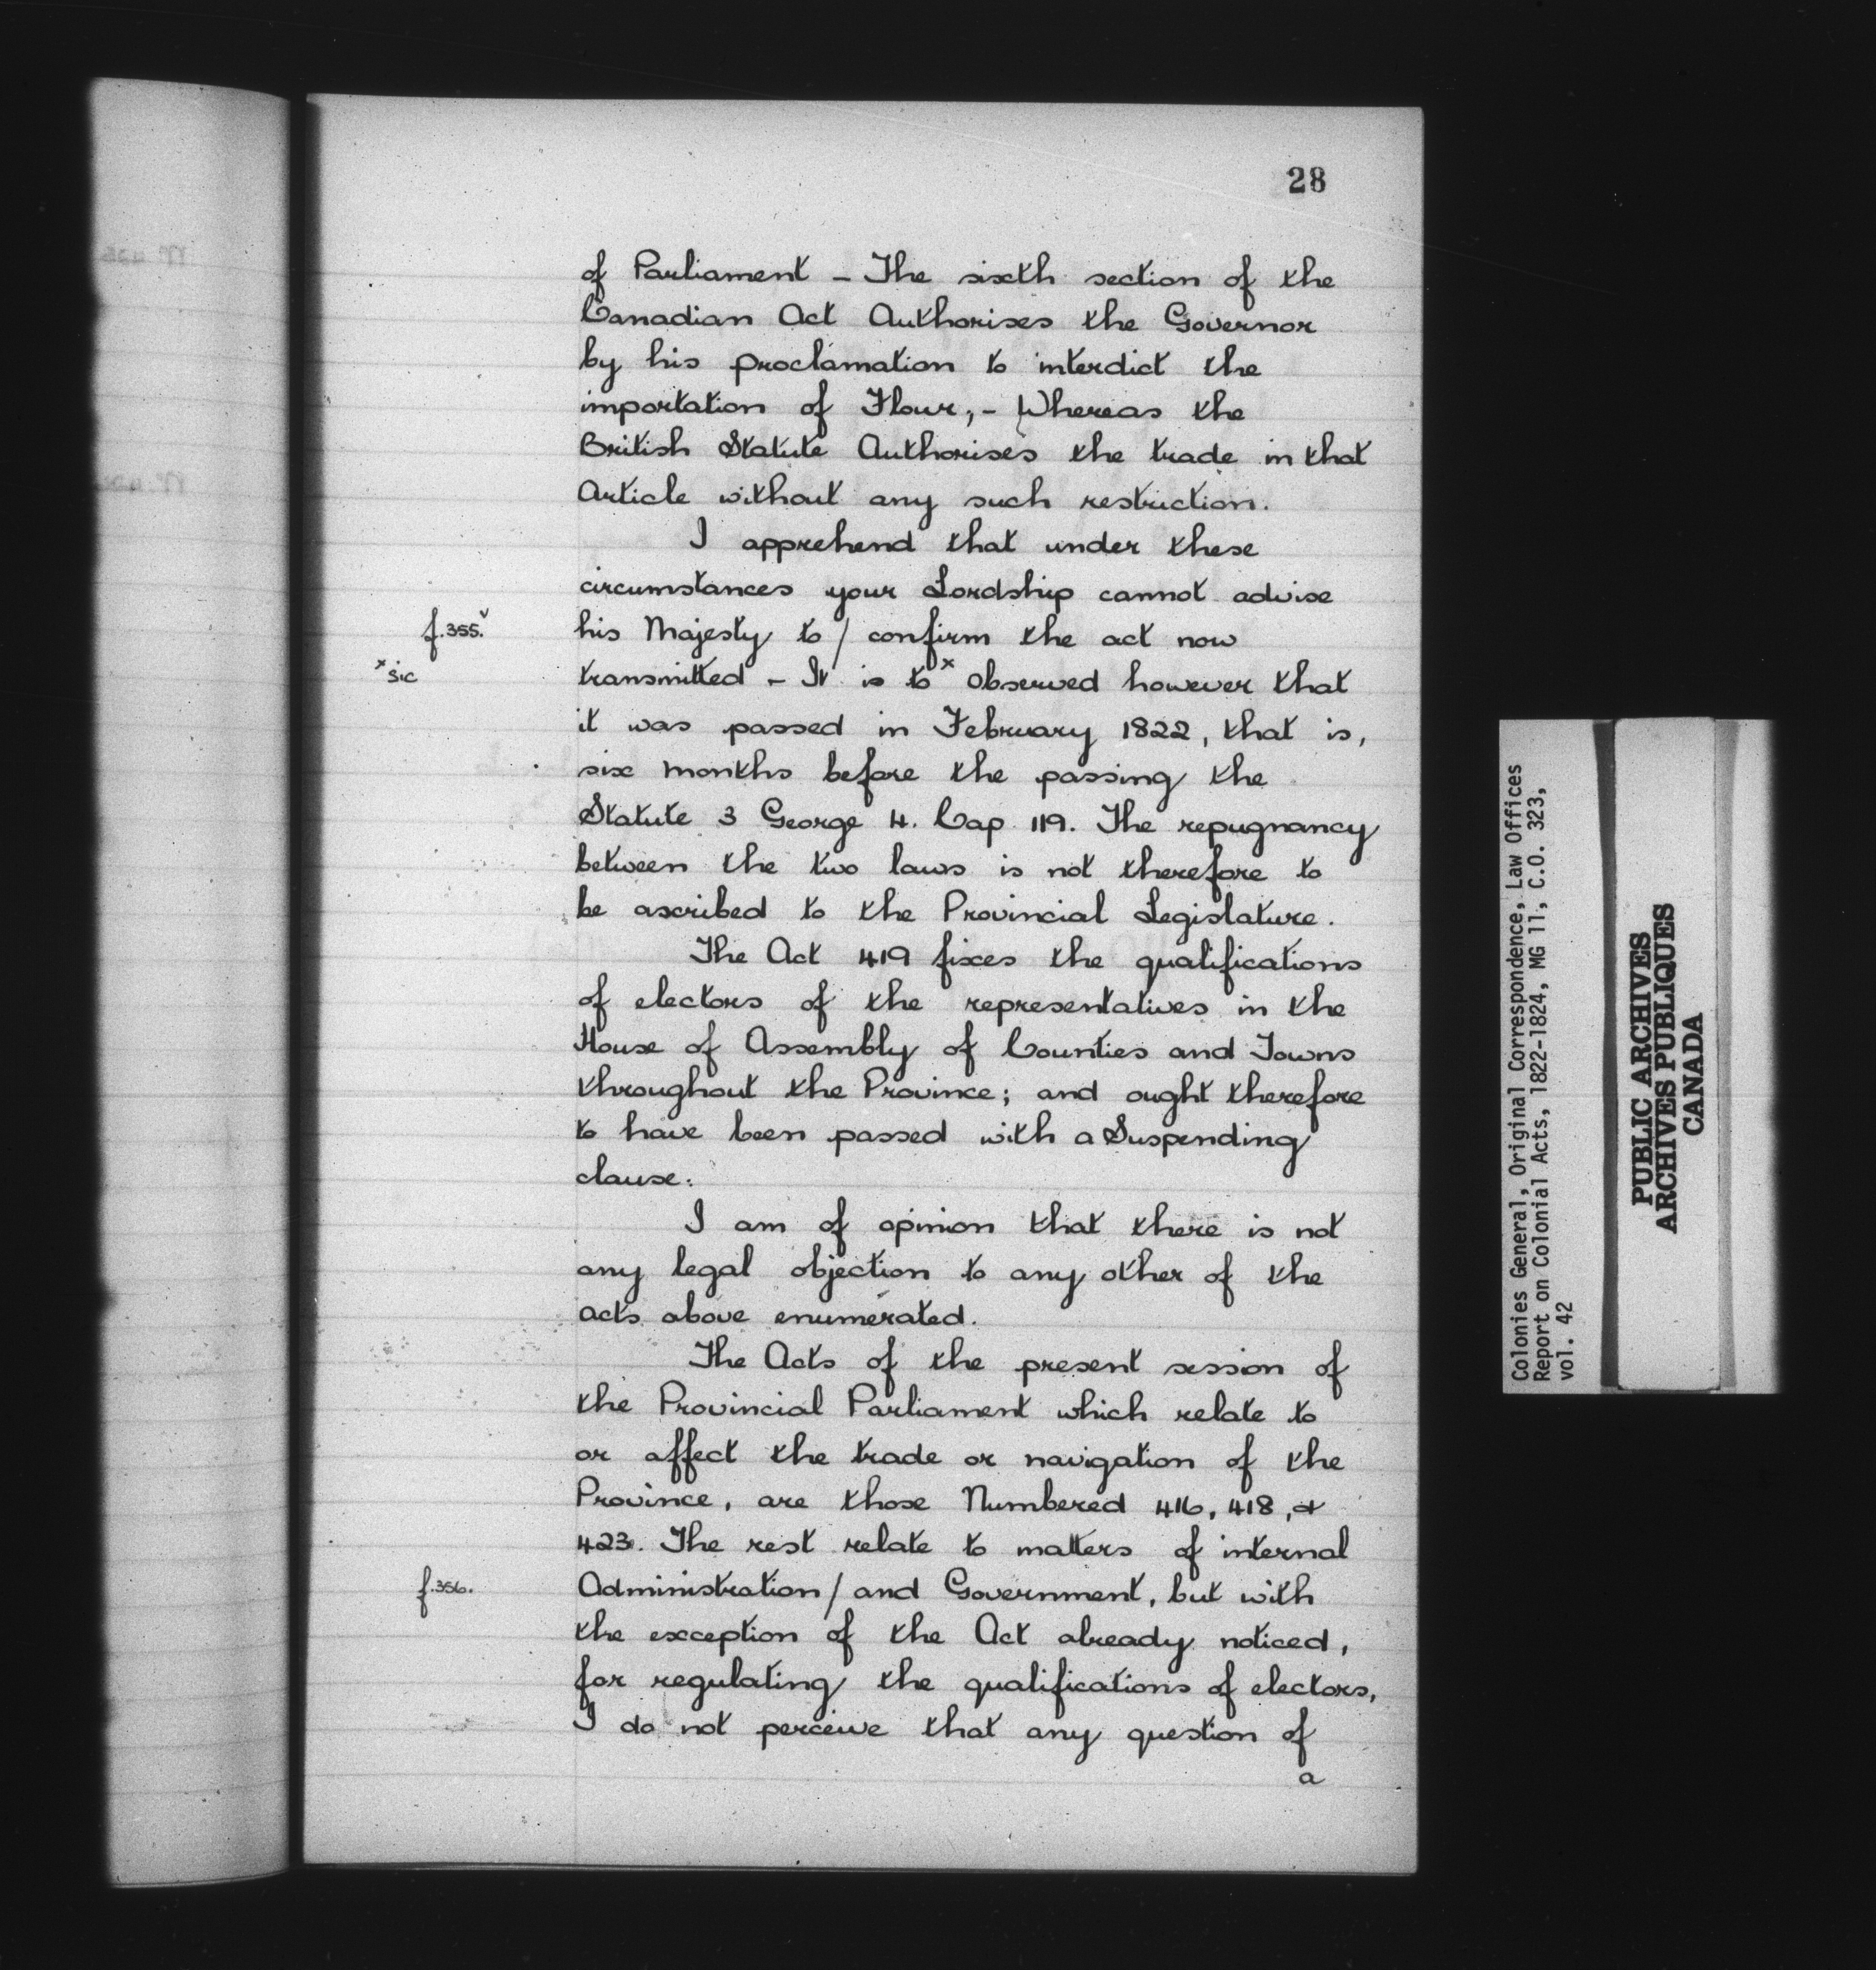 28
of Parliament - The sixth section of the
Canadian Act Authorises the Governor
by his proclamation to interdict the
importation of Flour, - Whereas the
British Statute Authorises the trade in that
Article without any such restriction.
I apprehend that under these
circumstances your Lordship cannot advise
f.355.v
his Majesty to / confirm the act now
x sic
transmitted - It is to x observed however that
it was passed in February 1822, that is,
six months before the passing the
Statute 3 George 4. Cap 119. The repugnancy
between the two laws is not therefore to
be ascribed to the Provincial Legislature.
The Act 419 fixes the qualifications
of electors of the representatives in the
House of Assembly of Counties and Towns
throughout the Province; and ought therefore
to have been passed with a Suspending
clause.
I am of opinion that there is not
any legal objection to any other of the
acts above enumerated.
The Acts of the present session of
the Provincial Parliament which relate to
or affect the trade or navigation of the
Province, are those Numbered 416, 418, &
423. The rest relate to matters of internal
f.356.
Administration / and Government, but with
the exception of the Act already noticed,
for regulating the qualifications of electors,
I do not perceive that any question of
a
Colonies General, Original Correspondence, Law Offices
Report on Colonial Acts, 1822-1824, MG 11, C.O. 323,
vol. 42
PUBLIC ARCHIVES
ARCHIVES PUBLIQUES
CANADA